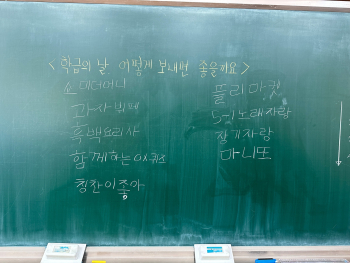 <학급의 날 어떻게 보내면 좋을까요>
소 미더머니
과자 법제
흑백요리사
함께하는 OX퀴즈
칭찬이 좋아
플리마켓
노래자랑
장기자랑
마니또